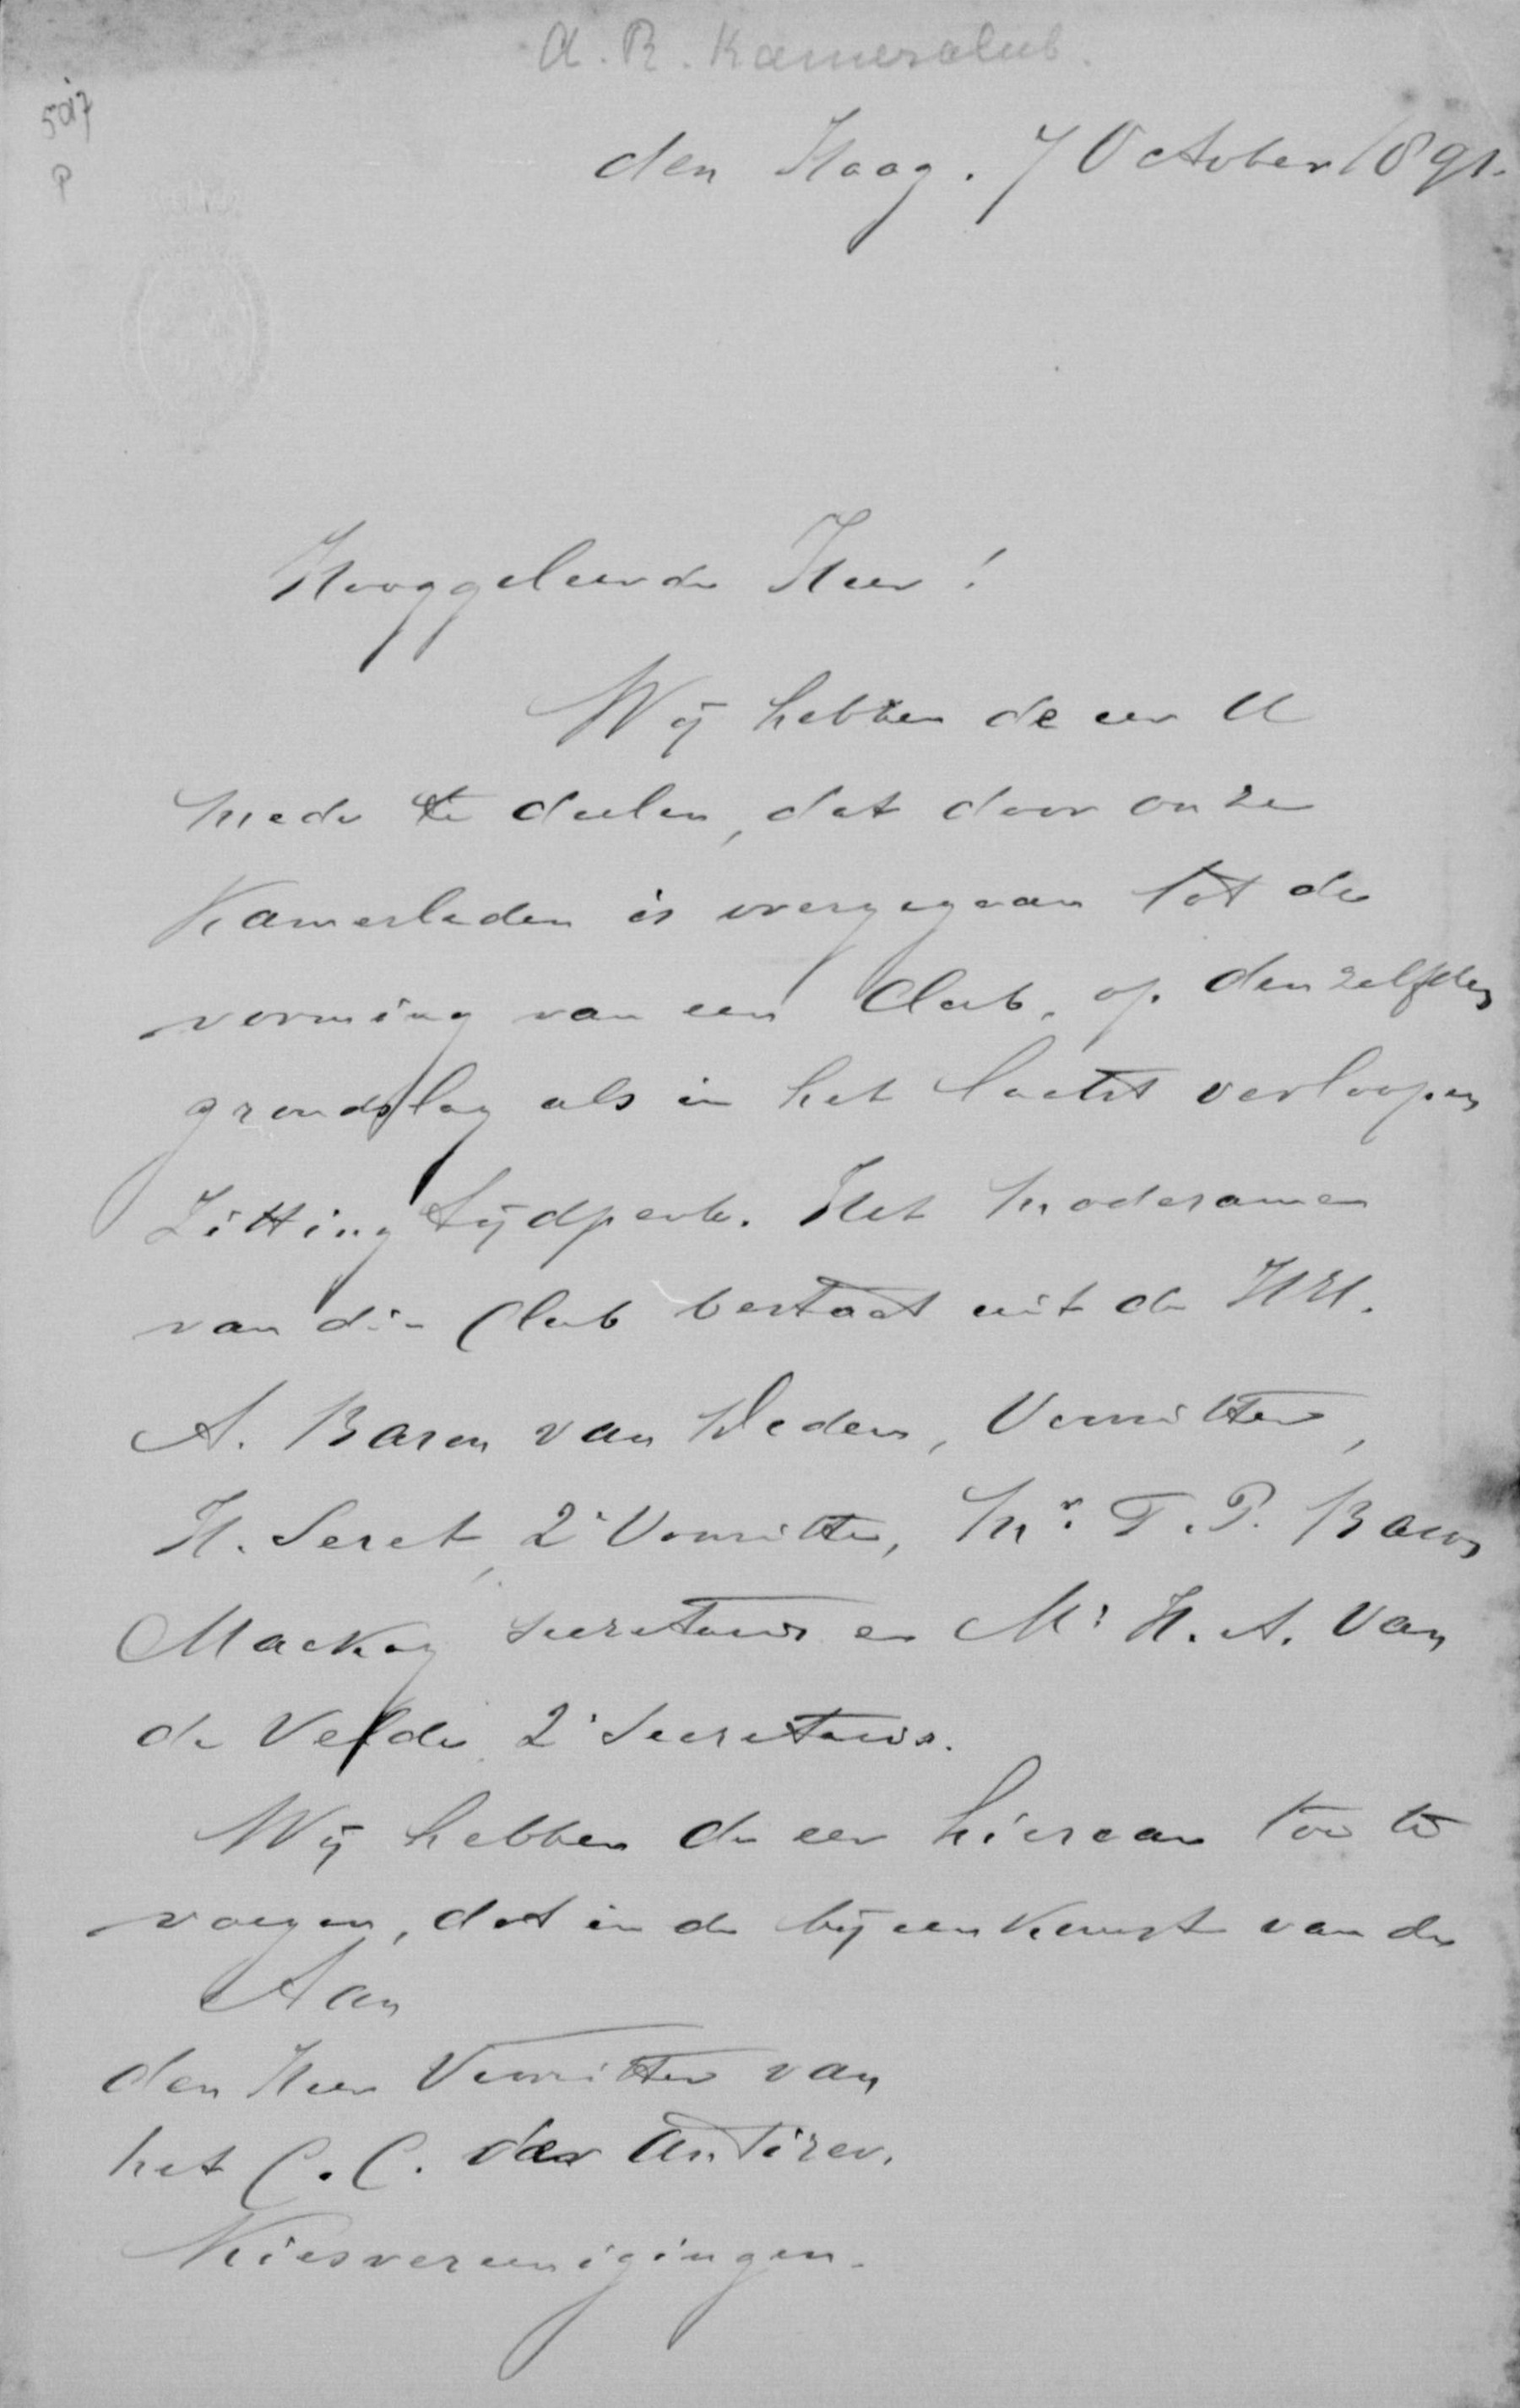 A. R. Kamerclub.
5017
P
den Haag. 7 October 1891.
Hooggeleerde Heer!
Wij hebben de eer U
mede te deelen, dat door onze
Kamerleden is overgegaan tot de
vorming van een Club, op denzelfden
grondslag als in het laatst verloopen
Zitting tijdperk. Het Moderamen
van die Club bestaat uit de HH.
A. Baron van Dedem, Voorzitter,
H. Seret, 2e Voorzitter, Mr. T. P. Baron
Mackay secretaris en Mr H. A. van
de Velde 2e Secretaris.
Wij hebben de eer hieraan toe te
voegen, dat in de bijeenkomst van de
Aan
den Heer Voorzitter van
het C. C. der Antirev.
Kiesvereenigingen.